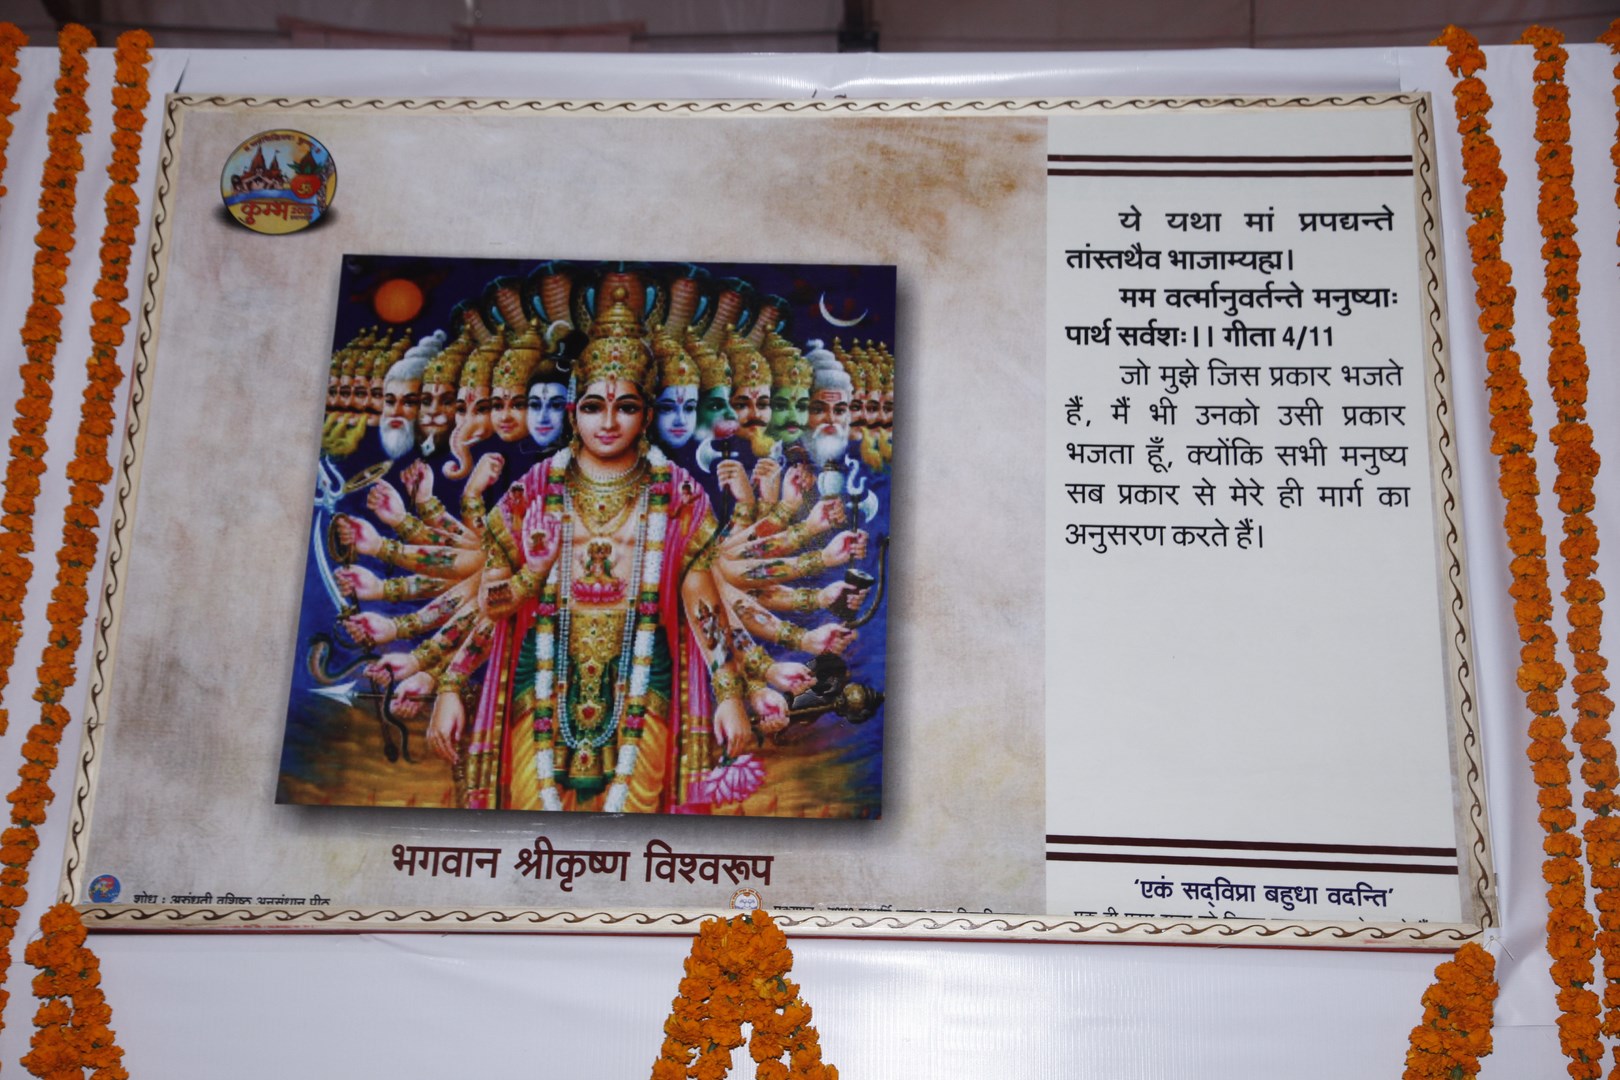 कुम्भ
ये यथा मां प्रपद्यन्ते
तांस्तथैव भाजाम्यह्म।
मम वर्त्मानुवर्तन्ते मनुष्याः
पार्थ सर्वशः।। गीता 4/11
जो मुझे जिस प्रकार भजते
हैं, मैं भी उनको उसी प्रकार
भजता हूँ, क्योंकि सभी मनुष्य
सब प्रकार से मेरे ही मार्ग का
अनुसरण करते हैं।
भगवान श्रीकृष्ण विश्वरूप
शोध : अरुंधती वशिष्ठ अनुसंधान पीठ
‘एकं सद्‌विप्रा बहुधा वदन्ति’